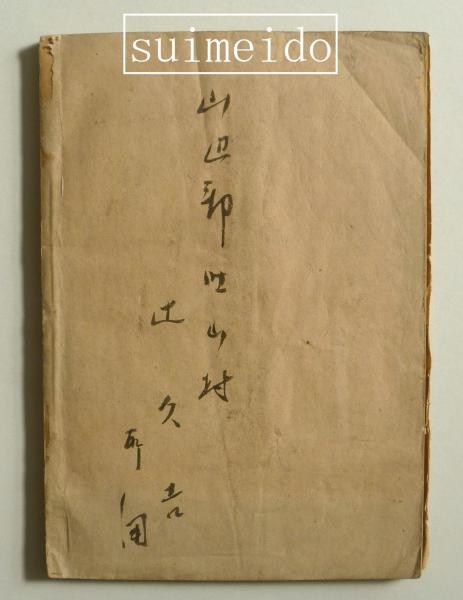 suimeido
山辺郡吐山村
辻久吉
所用